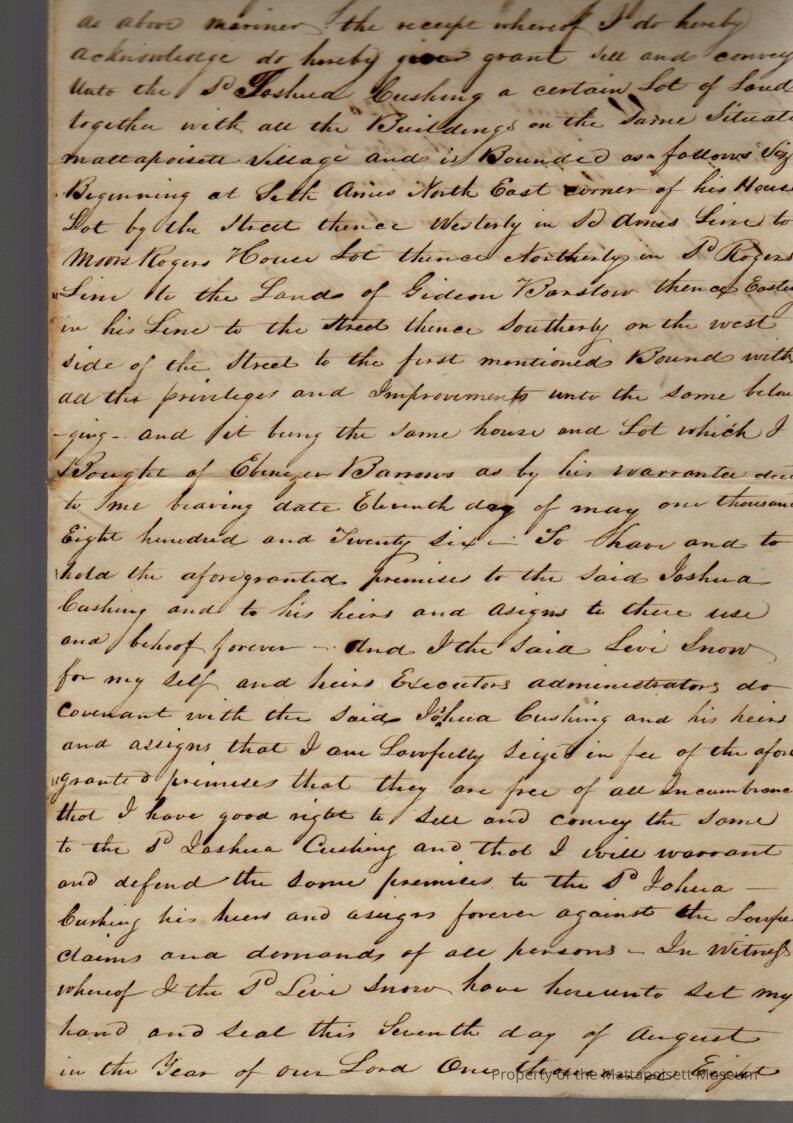 as above mariner the receipt whereof I do hereby
acknowledge do hereby give grant sell and convey
Unto the Sd Joshua Cushing a certain Lot of Land
together with all the Buildings on the Same Situate
mattapoisett village and is Bounded as follows Viz
Beginning at Seth Ames North East corner of his House
Lot by the Street thence Westerly in Sd Ames Line to
Moors Rogers House Lot thence Northerly in Sd Rogers
Line to the Lands of Gideon Barstow thence Easter
in his Line to the Street thence Southerly on the west
side of the Street to the first mentioned Bound with
all the privileges and Improvements unto the same belon
-ging- and it being the same house and Lot which I
Bought of Ebenezer Barrows as by his warrantee deed
to me bearing date Eleventh day of may one thousand
Eight hundred and Twenty Six - To have and to
hold the aforegranted premises to the said Joshua
Cushing and to his heirs and asigns to there use
and behoof forever - And I the said Levi Snow
for my self and heirs Executors administrators do
Covenant with the said Joshua Cushing and his heirs
and assigns that I am Lawfully Seized in fee of the afore
granted premises that they are free of all Incumbrance
that I have good right to Sell and convey the same
to the Sd Joshua Cushing and that I will warrant
and defend the same premises to the Sd Johua -
Cushing his heirs and assigns forever against the Lawfu
claims and demands of all persons - In Witness
whereof I the Sd Levi Snow have hereunto Set my
hand and Seal this Seventh day of August
in the Year of our Lord One Eight
Property of the Mattapoisett Museum